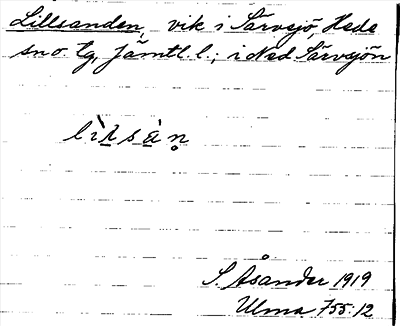 Lillsanden, vik i Särvsjö, Hede
sno. tg, Jämtl. l.; i Ned Särvsjön
lìlsàn̥
S. Åsander 1919
Ulma 755:12